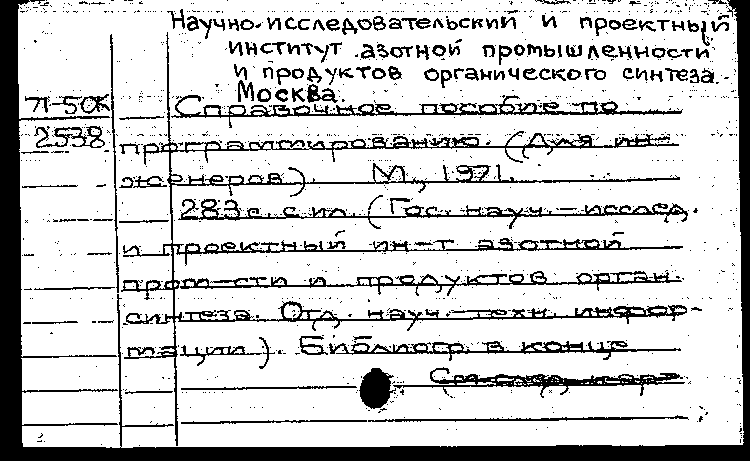 Научно-исследовательский и проектный
институт азотной промышленности
и продуктов органического синтеза.
Москва.
71-50К Справочное пособие по
2538 программированию. (Для ин-
женеров). М., 1971.
283 с. с ил. (Гос. науч.-исслед.
и проектный ин-т азотной
пром-сти и продуктов орган.
синтеза. Отд. науч.-техн. инфор-
мации). Библиогр. в конце